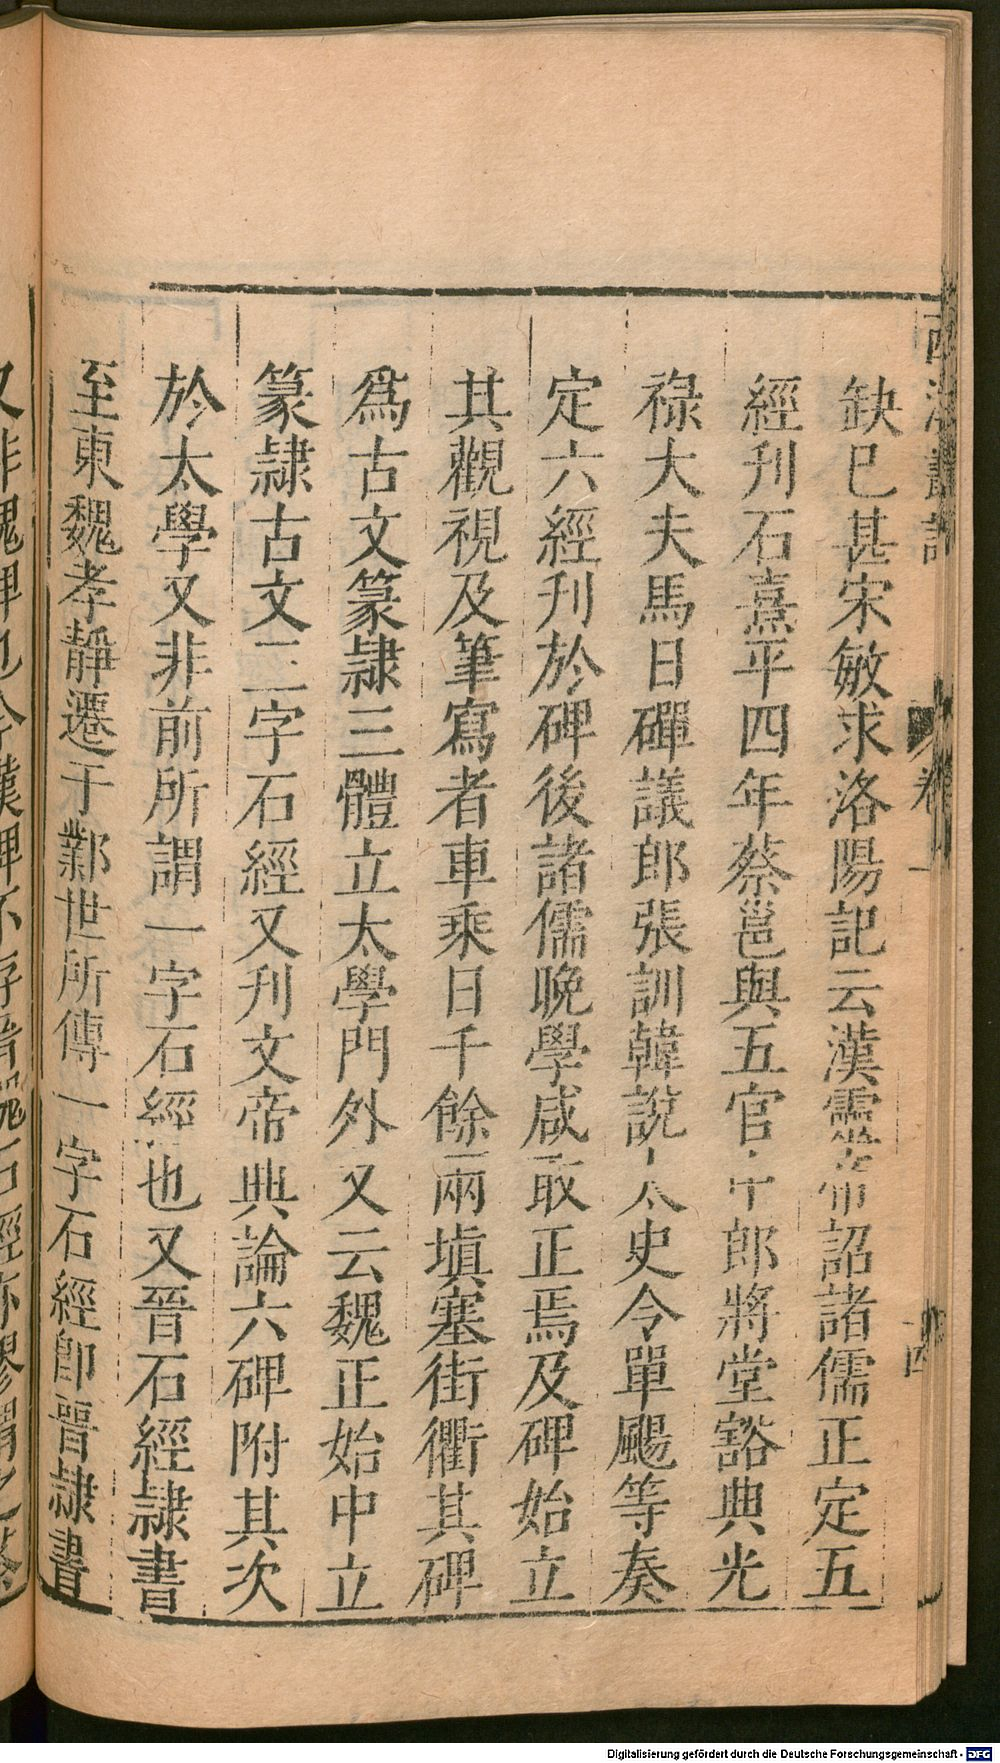 卷一
缺已甚宋敏求洛陽記云漢靈帝詔諸儒正定五
經刊石熹平四年蔡邕與五官中郎將堂谿典光
祿大夫馬日磾議郎張訓韓說太史令單颺等奏
定六經刊於碑後諸儒晚學咸取正焉及碑始立
其觀視及筆寫者車乘日千餘兩填塞街衢其碑
爲古文篆隷三體立太學門外又云魏正始中立
篆隷古文三字石經又刊文帝典論六碑附其次
於太學又非前所謂一字石經也又晉石經隷書
至東魏孝靜遷于鄴世所傳一字石經卽晉隷書
又非魏碑也今漢碑不存晉魏石經亦繆謂之蔡
Digitalisierung gefördert durch die Deutsche Forschungsgemeinschaft - DFG